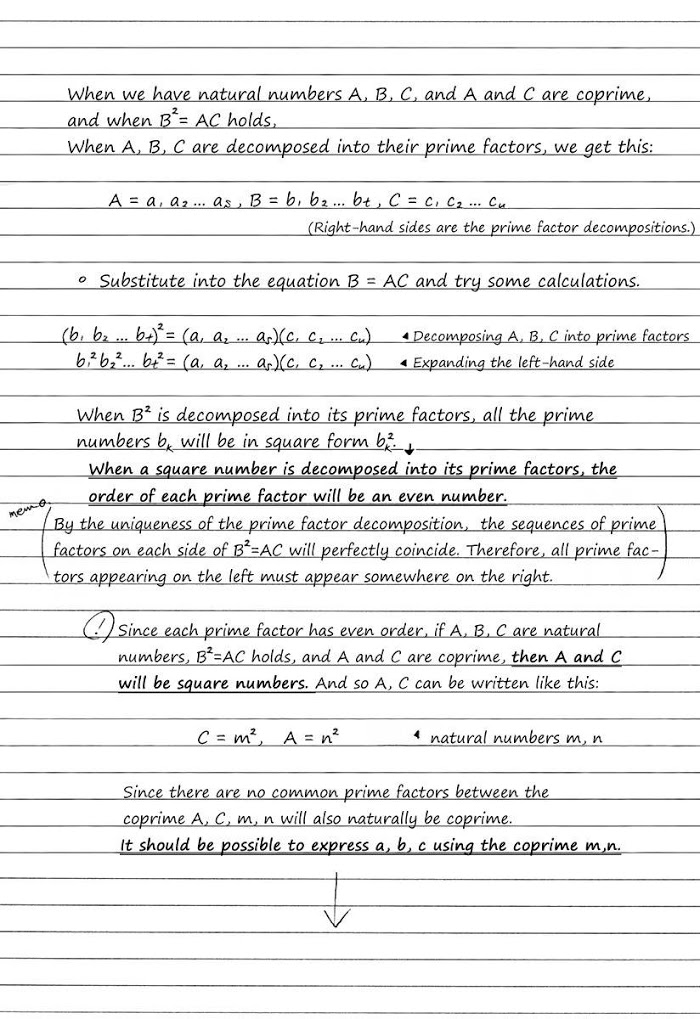 When we have natural numbers A, B, C, and A and C are coprime,
and when B²= AC holds,
When A, B, C are decomposed into their prime factors, we get this:
A = a₁ a₂ ... aₛ , B = b₁ b₂ ... bₜ , C = c₁ c₂ ... cᵤ
(Right-hand sides are the prime factor decompositions.)
° Substitute into the equation B = AC and try some calculations.
(b₁ b₂ ... bₜ)² = (a₁ a₂ ... aₛ)(c₁ c₂ ... cᵤ) ◂ Decomposing A, B, C into prime factors
b₁² b₂² ... bₜ² = (a₁ a₂ ... aₛ)(c₁ c₂ ... cᵤ) ◂ Expanding the left-hand side
When B² is decomposed into its prime factors, all the prime
numbers bₖ will be in square form bₖ². ↓
When a square number is decomposed into its prime factors, the
order of each prime factor will be an even number.
memo
(By the uniqueness of the prime factor decomposition, the sequences of prime
factors on each side of B²=AC will perfectly coincide. Therefore, all prime fac-
tors appearing on the left must appear somewhere on the right.)
(!) Since each prime factor has even order, if A, B, C are natural
numbers, B²=AC holds, and A and C are coprime, then A and C
will be square numbers. And so A, C can be written like this:
C = m², A = n² ◂ natural numbers m, n
Since there are no common prime factors between the
coprime A, C, m, n will also naturally be coprime.
It should be possible to express a, b, c using the coprime m,n.